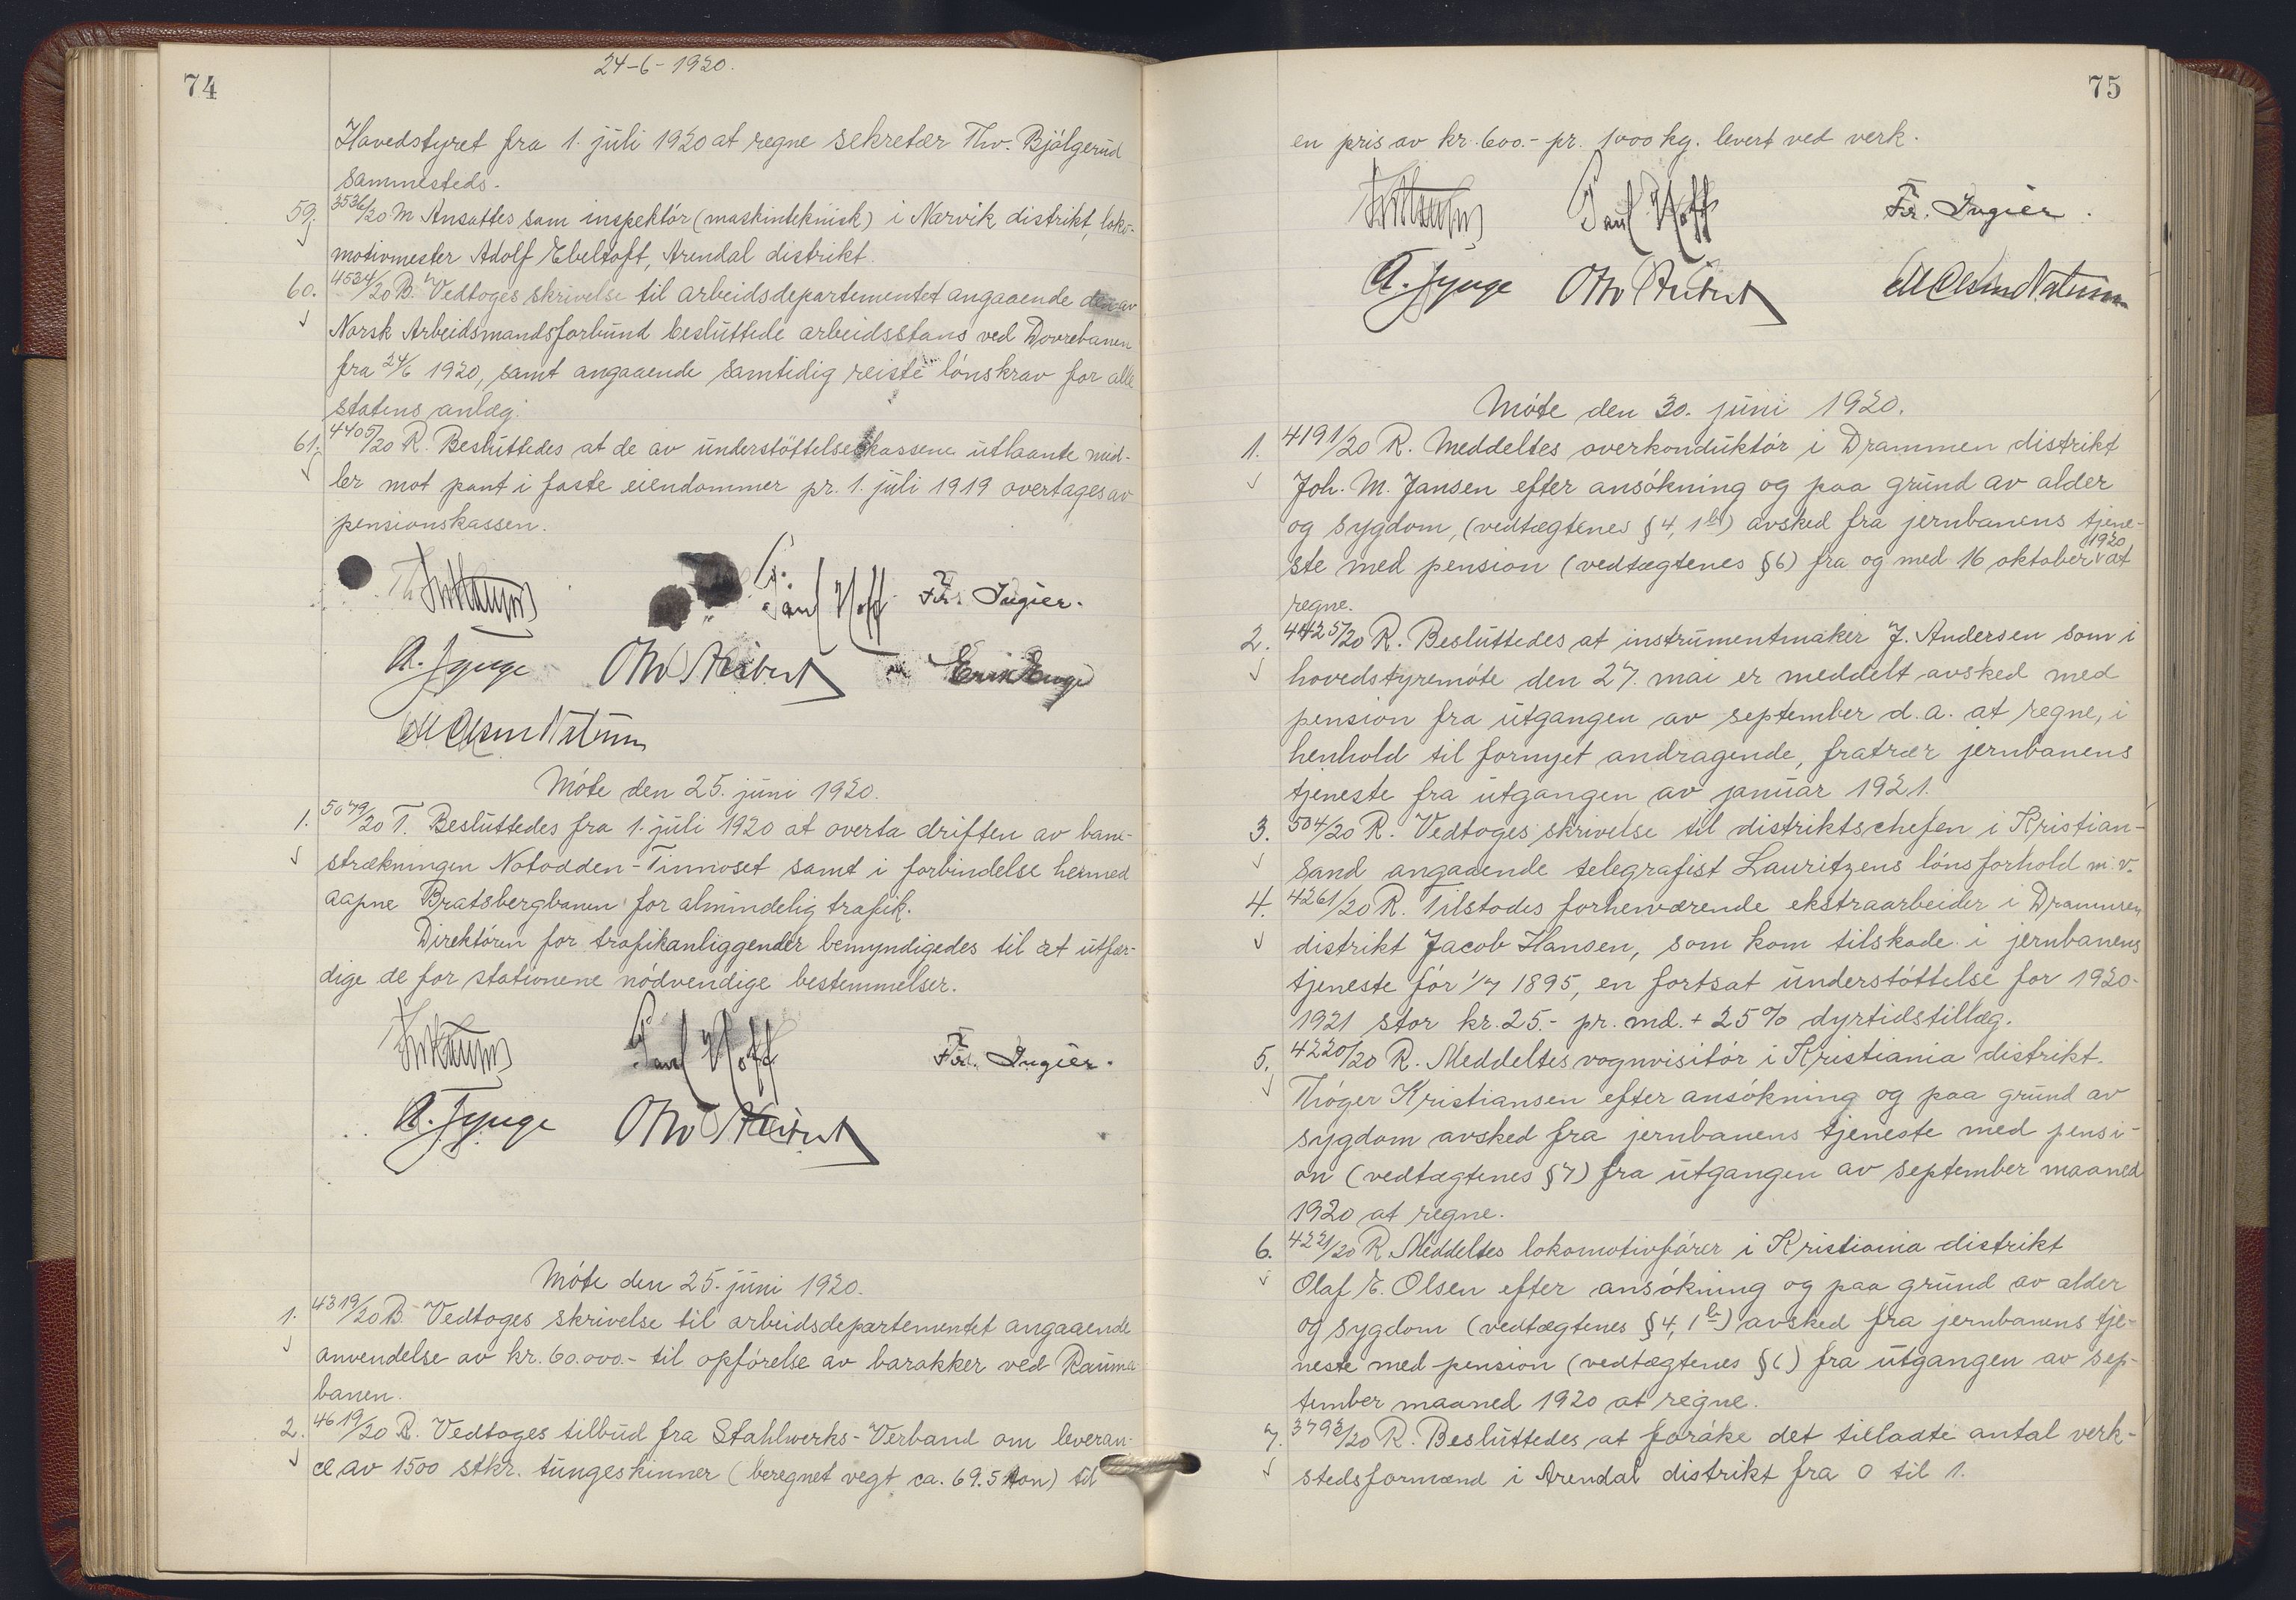 74
24-6-1920.
Hovedstyret fra 1. juli 1920 at regne sekretær Thv. Bjålgerud
sammesteds.
59. 3536/20 M Ansattes som inspektör (maskinteknisk) i Narvik distrikt, loko-
motivmester Adolf Ebeltoft, Arendal distrikt.
60. 4534/20 B. Vedtoges skrivelse til arbeidsdepartementet angaaende den av
Norsk Arbeidsmandsforbund besluttede arbeidsstans ved Dovrebanen
fra 24/6 1920, samt angaaende samtidig reiste lönskrav for alle
statens anlæg.
61. 4405/20 R. Besluttedes at de av understöttelseskassene utlaante mid-
ler mot pant i faste eiendommer pr. 1. juli 1919 overtages av
pensionskassen.
Paul Hoff Fr. Ingier.
Möte den 25. juni 1920.
1. 5079/20 T. Besluttedes fra 1. juli 1920 at overta driften av bane-
strækningen Notodden-Tinnoset samt i forbindelse hermed
aapne Bratsbergbanen for almindelig trafik.
Direktören for trafikanliggender bemyndigedes til at utfær-
dige de for stationene nödvendige bestemmelser.
Paul Hoff Fr. Ingier.
Möte den 25. juni 1920.
1. 4319/20 B. Vedtoges skrivelse til arbeidsdepartementet angaaende
anvendelse av kr. 60.000.- til opförelse av barakker ved Rauma-
banen.
2. 4619/20 R. Vedtoges tilbud fra Stahlwerks-Verband om leveran-
ce av 1500 stkr. tungeskinner (beregnet vegt ca. 69.5 ton) til
75
en pris av kr. 600.- pr. 1000 kg. levert ved verk.
Paul Hoff Fr. Ingier.
Möte den 30. juni 1920.
1. 4191/20 R. Meddeltes overkonduktör i Drammen distrikt
Joh. M. Jansen efter ansökning og paa grund av alder
og sygdom, (vedtægtenes § 4, 1 b) avsked fra jernbanens tjene-
ste med pension (vedtægtenes § 6) fra og med 16 oktober 1920 at
regne.
2. 4425/20 R. Besluttedes at instrumentmaker J. Andersen som i
hovedstyremöte den 27. mai er meddelt avsked med
pension fra utgangen av september d.a. at regne, i
henhold til fornyet andragende, fratrær jernbanens
tjeneste fra utgangen av januar 1921.
3. 504/20 R. Vedtoges skrivelse til distriktschefen i Kristian-
sand angaaende telegrafist Lauritzens lönsforhold m.v.
4. 4261/20 R. Tilstodes forhenværende ekstraarbeider i Drammen
distrikt Jacob Hansen, som kom tilskade i jernbanens
tjeneste för 1/7 1895, en fortsat understöttelse for 1920-
1921 stor kr. 25.- pr. md. + 25% dyrtidstillæg.
5. 4220/20 R. Meddeltes vognvisitör i Kristiania distrikt.
Thöger Kristiansen efter ansökning og paa grund av
sygdom avsked fra jernbanens tjeneste med pensi-
on (vedtægtenes § 7) fra utgangen av september maaned
1920 at regne.
6. 4221/20 R. Meddeltes lokomotivförer i Kristiania distrikt
Olaf E. Olsen efter ansökning og paa grund av alder
og sygdom (vedtægtenes § 4, 1 b) avsked fra jernbanens tje-
neste med pension (vedtægtenes § 6) fra utgangen av sep-
tember maaned 1920 at regne.
7. 3793/20 R. Besluttedes at foröke det tilladte antal verk-
stedsformænd i Arendal distrikt fra 0 til 1.